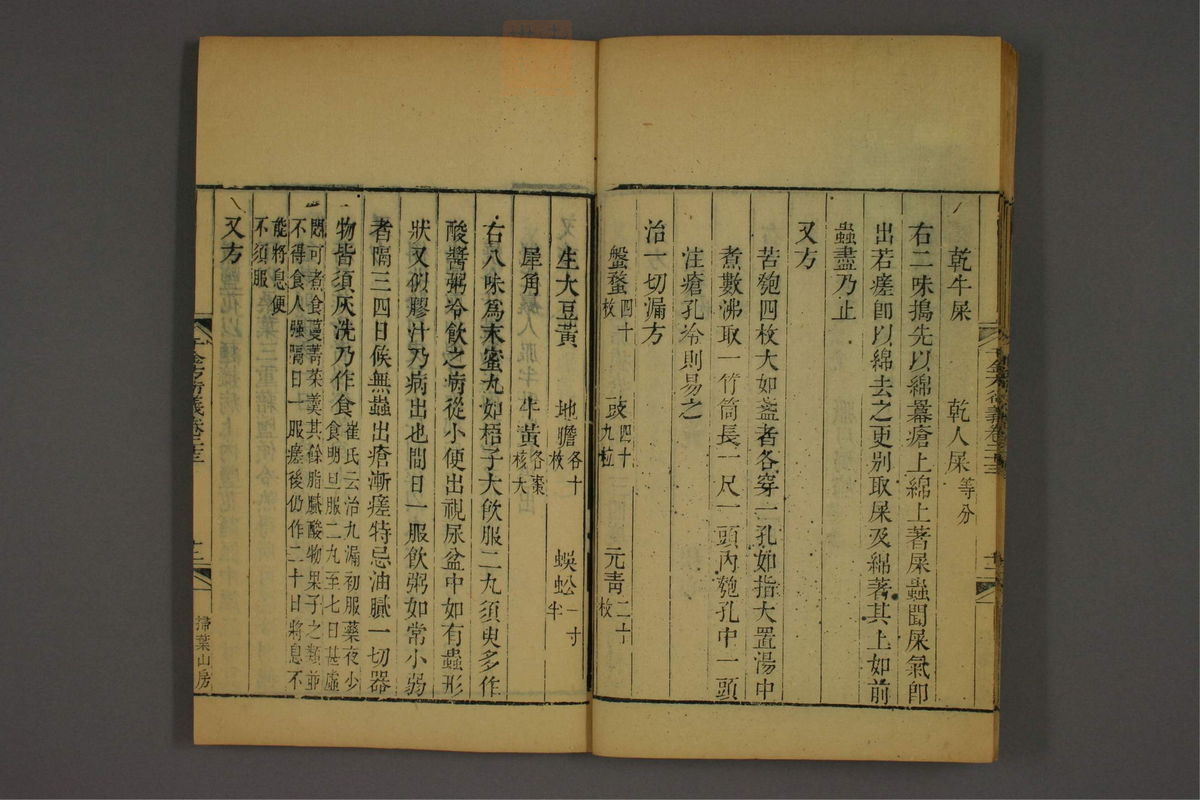 乾牛屎 乾人屎等分
右二味搗先以綿羃瘡上綿上著屎蟲聞屎氣卽
出若瘥卽以綿去之更别取屎及綿著其上如前
蟲盡乃止
又方
苦匏四枚大如盞者各穿一孔如指大置湯中
煮數沸取一竹筒長一尺一頭內匏孔中一頭
注瘡孔冷則易之
治一切漏方
盤蝥四十枚 豉四十九粒 元青二十枚
生大豆黃 地膽各十枚 蜈蚣一寸半
犀角 牛黃各棗核大
右八味爲末蜜丸如梧子大飲服二丸須臾多作
酸醬粥冷飲之病從小便出視尿盆中如有蟲形
狀又似膠汁乃病出也間日一服飲粥如常小弱
者隔三四日候無蟲出瘡漸瘥特忌油膩一切器
物皆須灰洗乃作食崔氏云治九漏初服藥夜少食明旦服二九至七日甚虛
悶可煮食蔓菁菜羮其餘脂膩酸物果子之類並不得食人强隔日一服瘥後仍作二十日將息不
能將息便不須服
又方
千金方衍義卷二十三
十二
掃葉山房